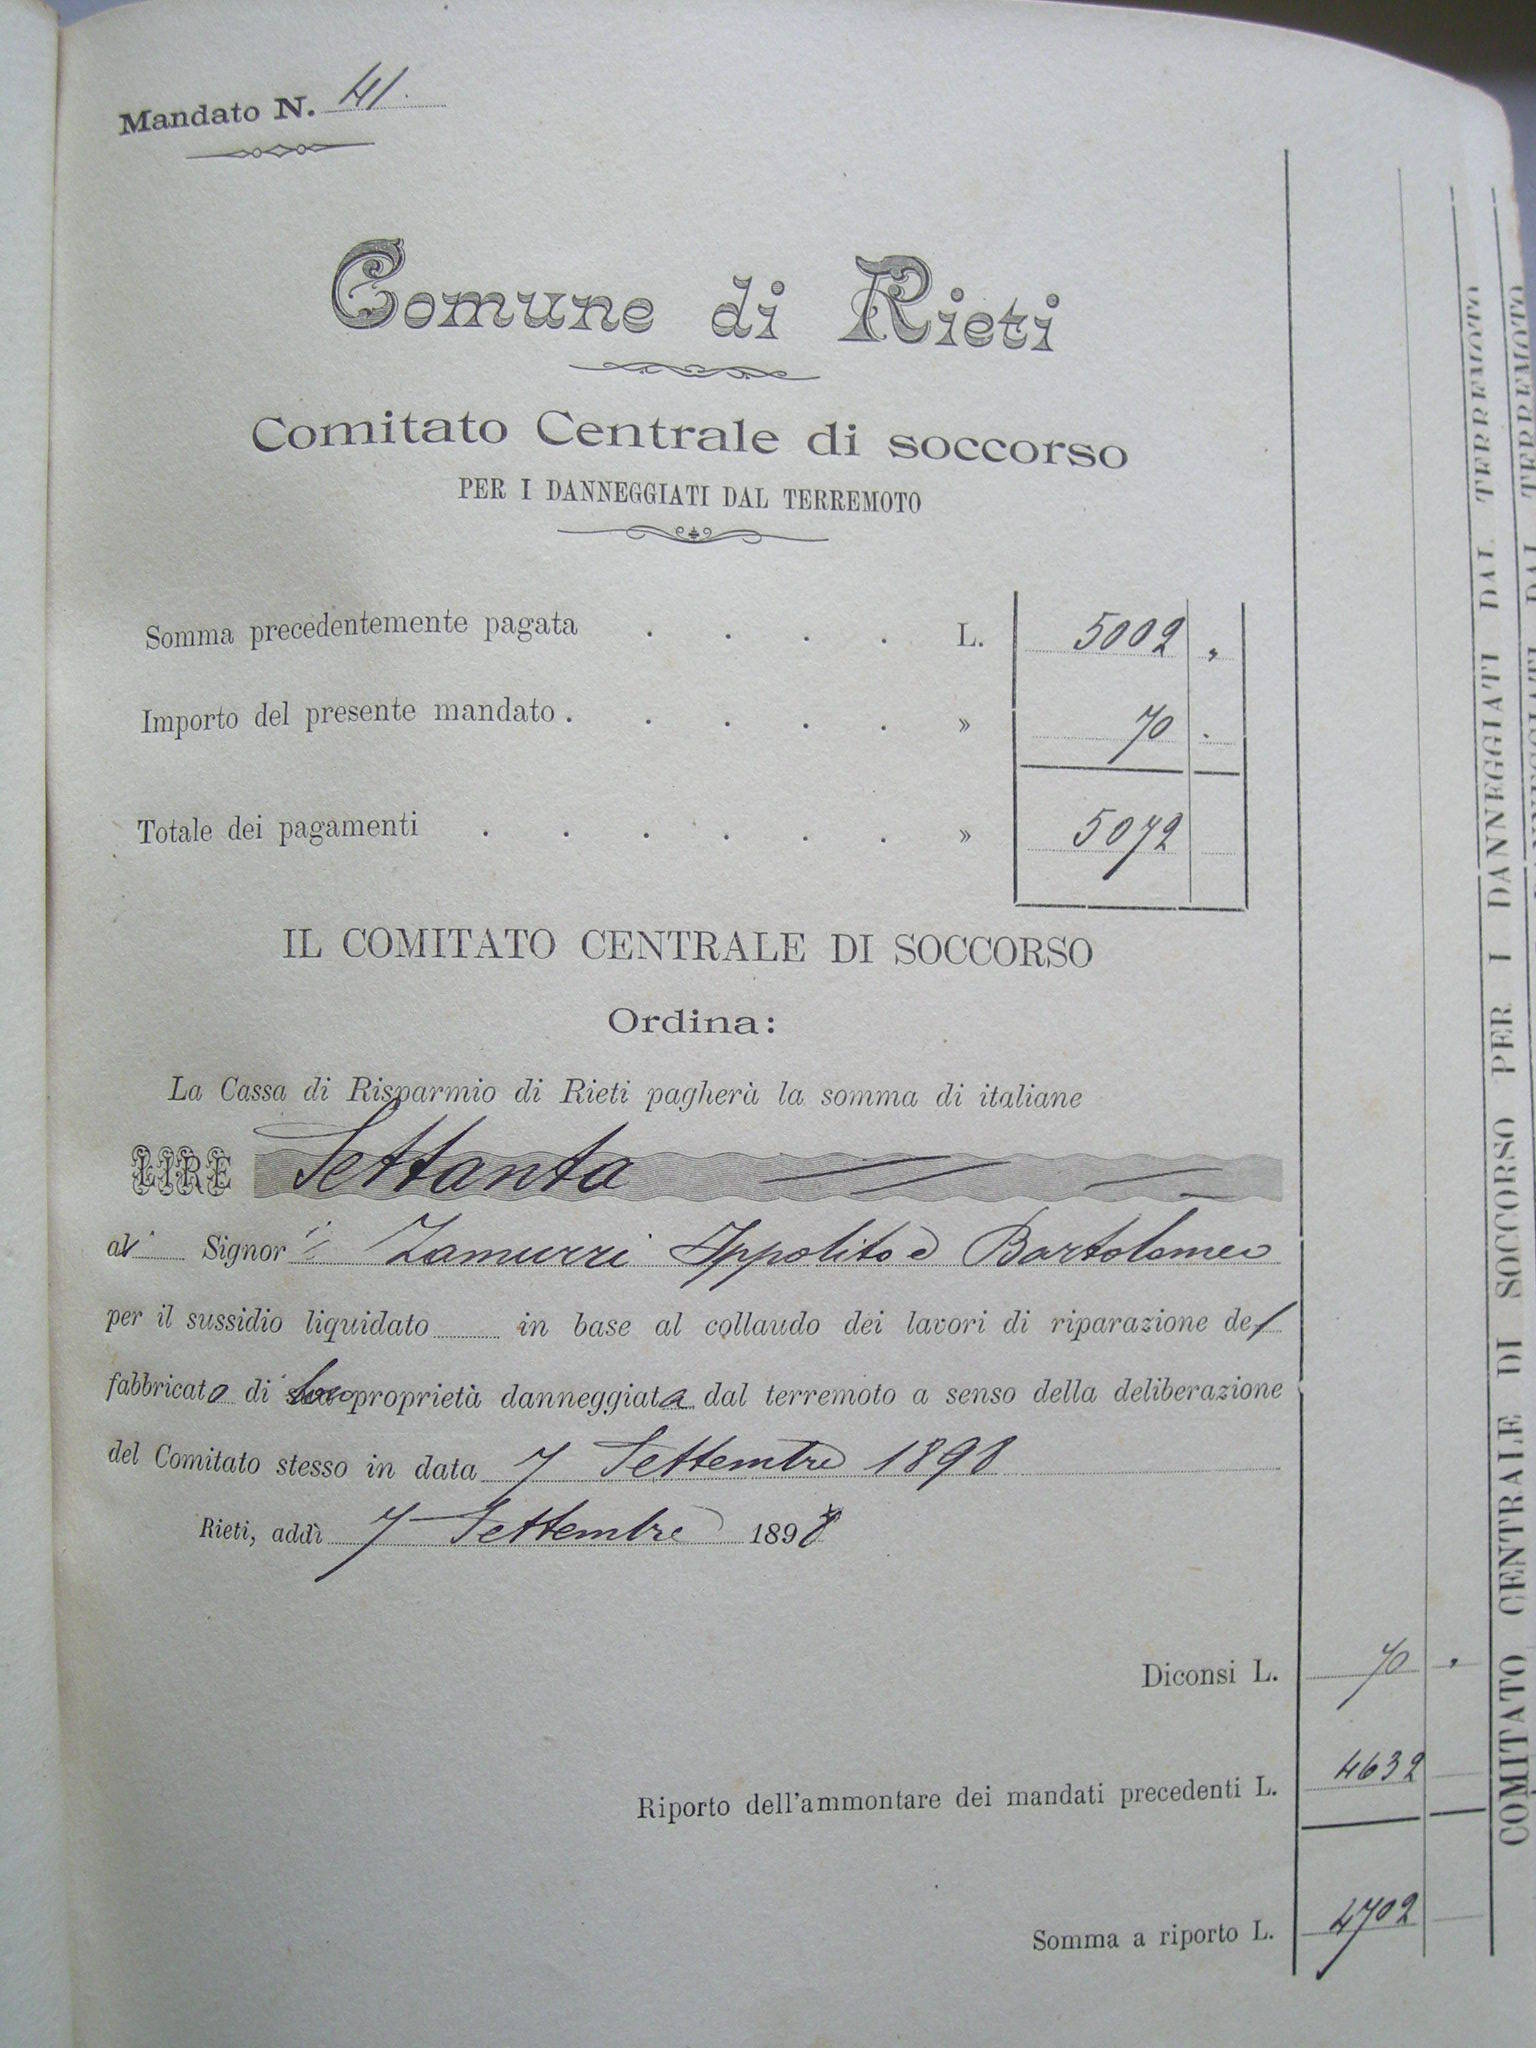 Mandato N. 41.
Comune di Rieti
Comitato Centrale di soccorso
PER I DANNEGGIATI DAL TERREMOTO
Somma precedentemente pagata . . . . L. 5002 „
Importo del presente mandato . . . . . » 70 .
Totale dei pagamenti . . . . . . » 5072
IL COMITATO CENTRALE DI SOCCORSO
Ordina:
La Cassa di Risparmio di Rieti pagherà la somma di italiane
LIRE Settanta
ai Signori Zamurri Ippolito e Bartolomeo
per il sussidio liquidato in base al collaudo dei lavori di riparazione del
fabbricato di loro proprietà danneggiata dal terremoto a senso della deliberazione
del Comitato stesso in data 7 Settembre 1898
Rieti, addì 7 Settembre 1898
Diconsi L. 70 „
Riporto dell'ammontare dei mandati precedenti L. 4632
Somma a riporto L. 4702
COMITATO CENTRALE DI SOCCORSO PER I DANNEGGIATI DAL TERREMOTO
DAL TERREMOTO